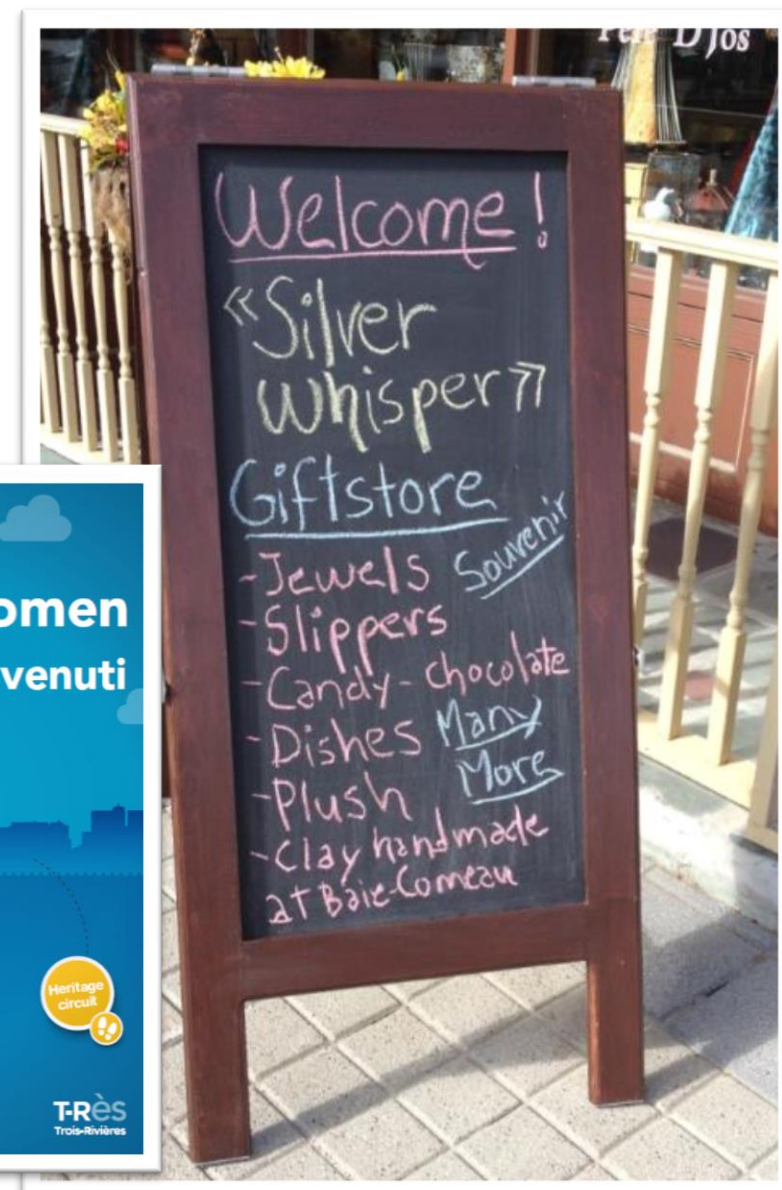 Père D'Jos
Welcome!
«Silver
Whisper»
Giftstore
Souvenir
-Jewels
-Slippers
-Candy-chocolate
-Dishes
Many
More
-Plush
-Clay handmade
at Baie-Comeau
omen
venuti
Heritage
circuit
T-Rès
Trois-Rivières